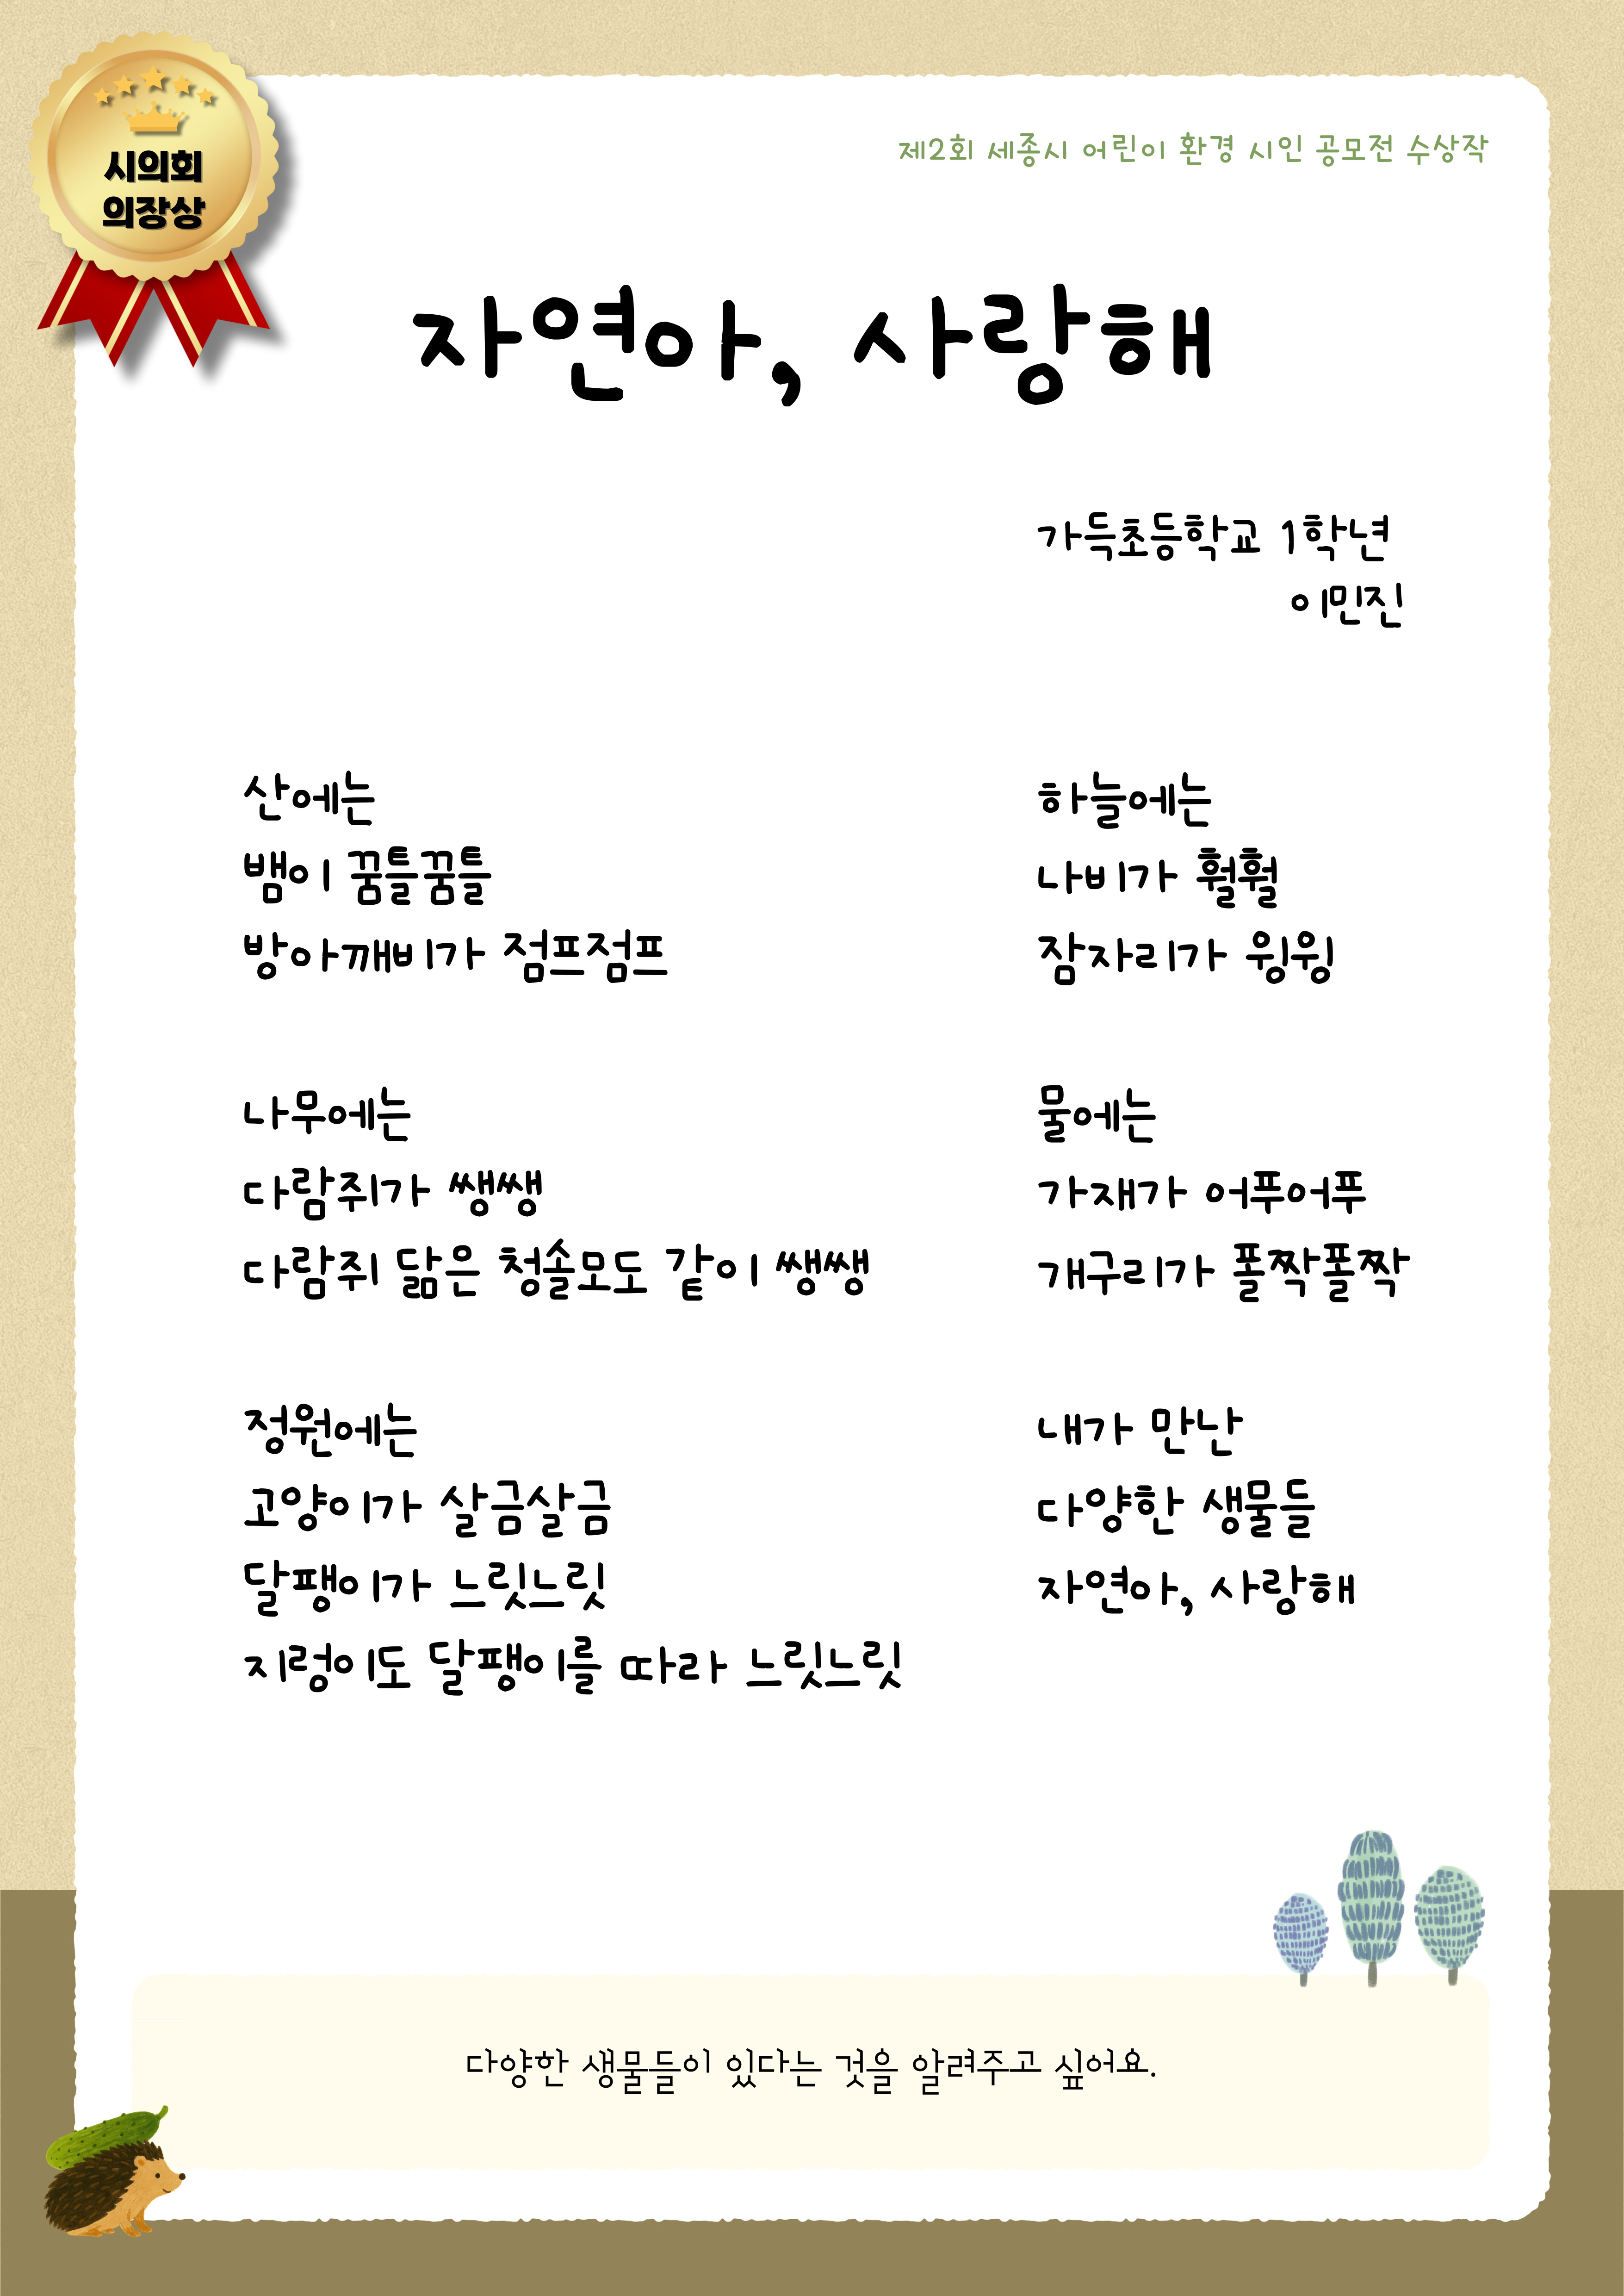 시의회
의장상
제2회 세종시 어린이 환경 시인 공모전 수상작
자연아, 사랑해
가득초등학교 1학년
이민진
산에는
뱀이 꿈틀꿈틀
방아깨비가 점프점프
나무에는
다람쥐가 쌩쌩
다람쥐 닮은 청솔모도 같이 쌩쌩
정원에는
고양이가 살금살금
달팽이가 느릿느릿
지렁이도 달팽이를 따라 느릿느릿
하늘에는
나비가 훨훨
잠자리가 윙윙
물에는
가재가 어푸어푸
개구리가 폴짝폴짝
내가 만난
다양한 생물들
자연아, 사랑해
다양한 생물들이 있다는 것을 알려주고 싶어요.